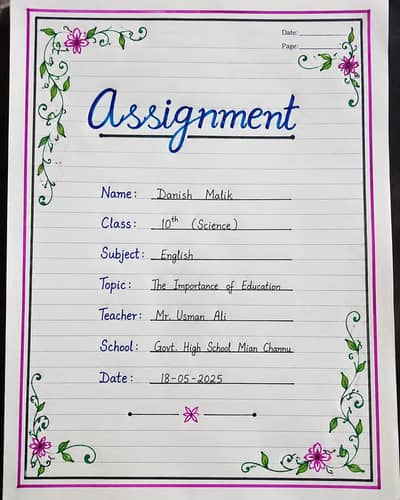 Date:
Page:
Assignment
Name: Danish Malik
Class: 10th (Science)
Subject: English
Topic: The Importance of Education
Teacher: Mr. Usman Ali
School: Govt. High School Mian Channu
Date: 18-05-2025